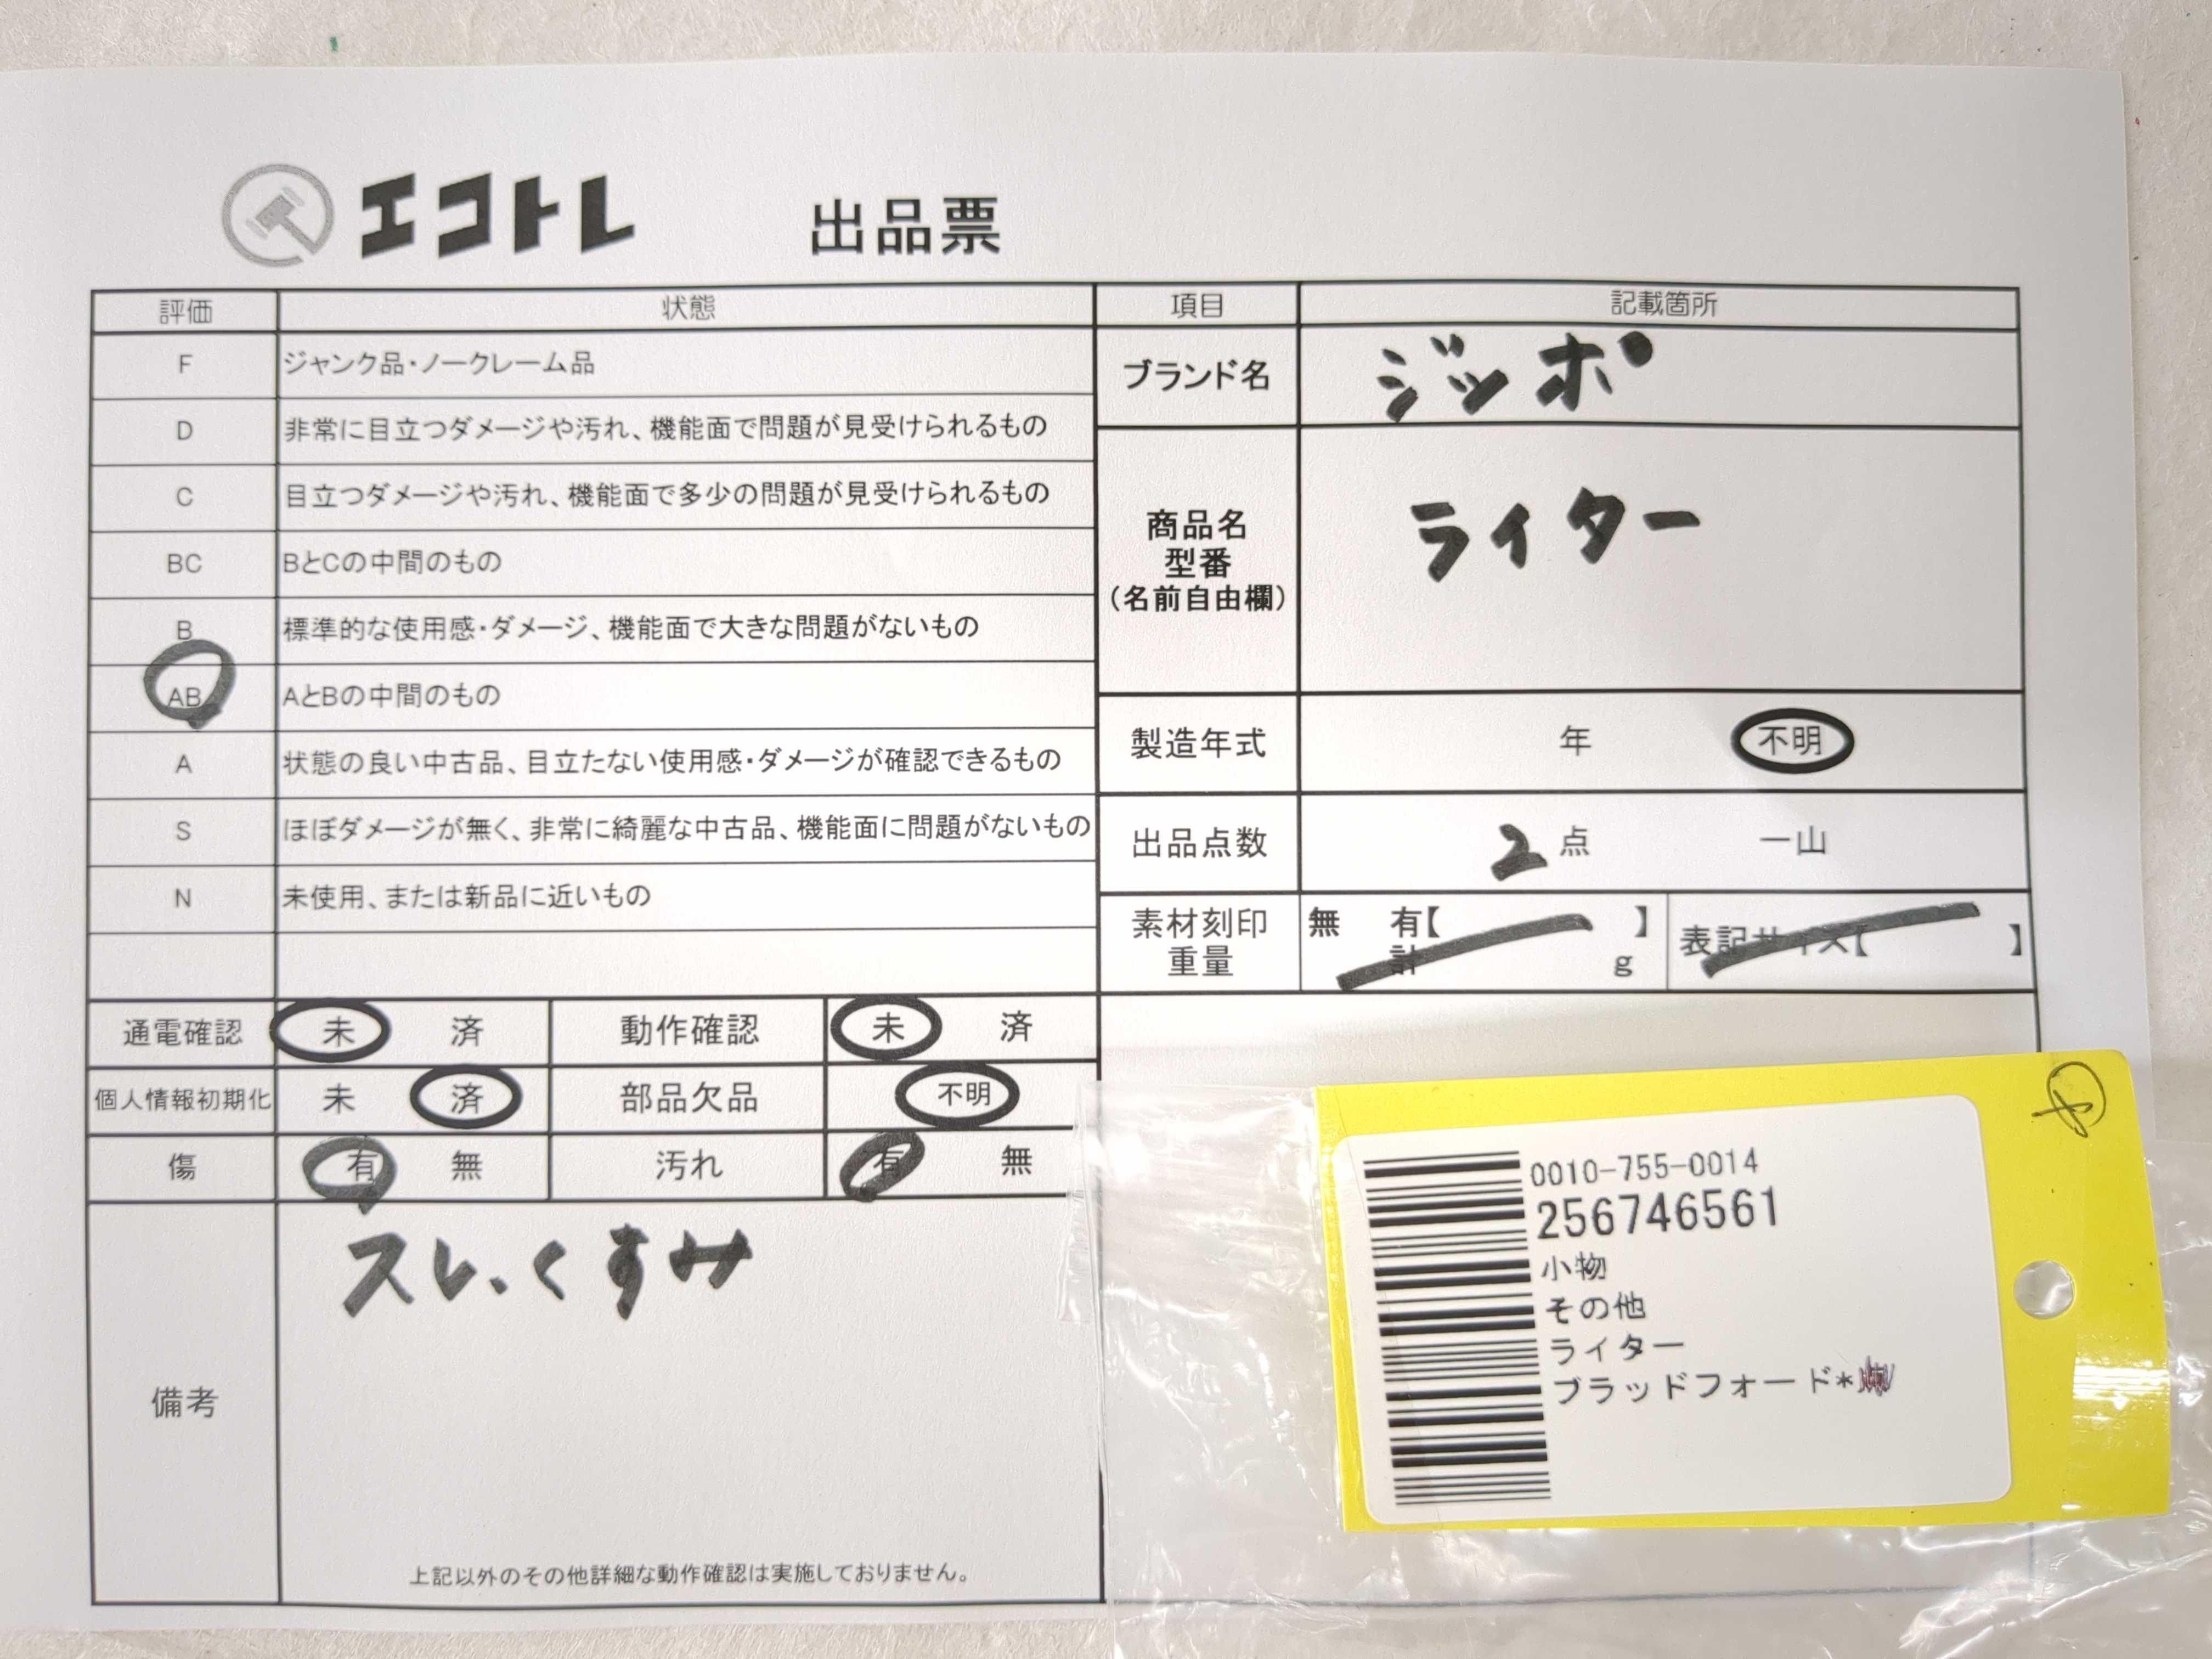 エコトレ 出品票
評価 状態
F ジャンク品・ノークレーム品
D 非常に目立つダメージや汚れ、機能面で問題が見受けられるもの
C 目立つダメージや汚れ、機能面で多少の問題が見受けられるもの
BC BとCの中間のもの
B 標準的な使用感・ダメージ、機能面で大きな問題がないもの
AB AとBの中間のもの
A 状態の良い中古品、目立たない使用感・ダメージが確認できるもの
S ほぼダメージが無く、非常に綺麗な中古品、機能面に問題がないもの
N 未使用、または新品に近いもの
通電確認 未 済 動作確認 未 済
個人情報初期化 未 済 部品欠品 不明
傷 有 無 汚れ 有 無
備考
スレ、くすみ
上記以外のその他詳細な動作確認は実施しておりません。
項目 記載箇所
ブランド名 ジッポ
商品名
型番
(名前自由欄)
ライター
製造年式 年 不明
出品点数 2点 一山
素材刻印
重量
無 有【 】
計 g
表記サイズ【 】
0010-755-0014
256746561
小物
その他
ライター
ブラッドフォード*